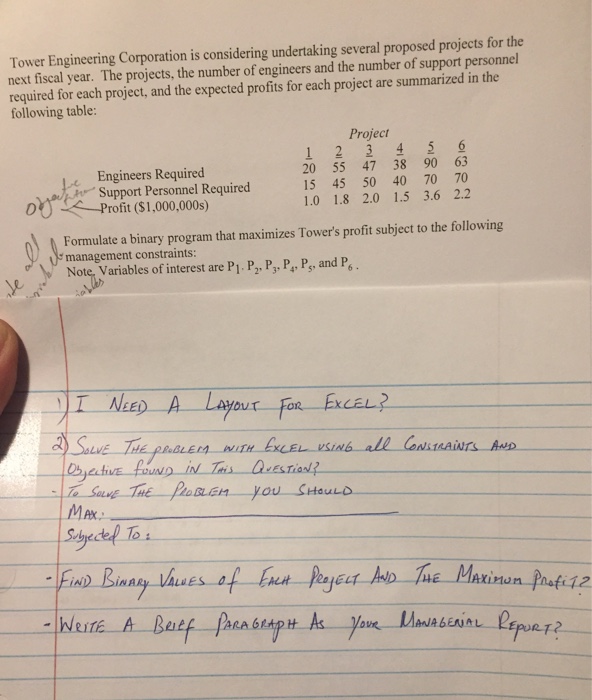 Tower Engineering Corporation is considering undertaking several proposed projects for the
next fiscal year. The projects, the number of engineers and the number of support personnel
required for each project, and the expected profits for each project are summarized in the
following table:
Project
1 2 3 4 5 6
Engineers Required 20 55 47 38 90 63
Support Personnel Required 15 45 50 40 70 70
Profit ($1,000,000s) 1.0 1.8 2.0 1.5 3.6 2.2
Formulate a binary program that maximizes Tower's profit subject to the following
management constraints:
Note, Variables of interest are P₁. P₂, P₃, P₄, P₅, and P₆.
all
1) I NEED A LAYOUT FOR EXCEL?
2) SOLVE THE PROBLEM WITH EXCEL USING all CONSTRAINTS AND
Objective found IN THIS QUESTION?
- To SOLVE THE PROBLEM YOU SHOULD
MAX:
Subjected To:
- FIND BINARY VALUES of EACH PROJECT AND THE MAXIMUM Profit?
- WRITE A BRIEF PARAGRAPH As Your MANAGERIAL REPORT?